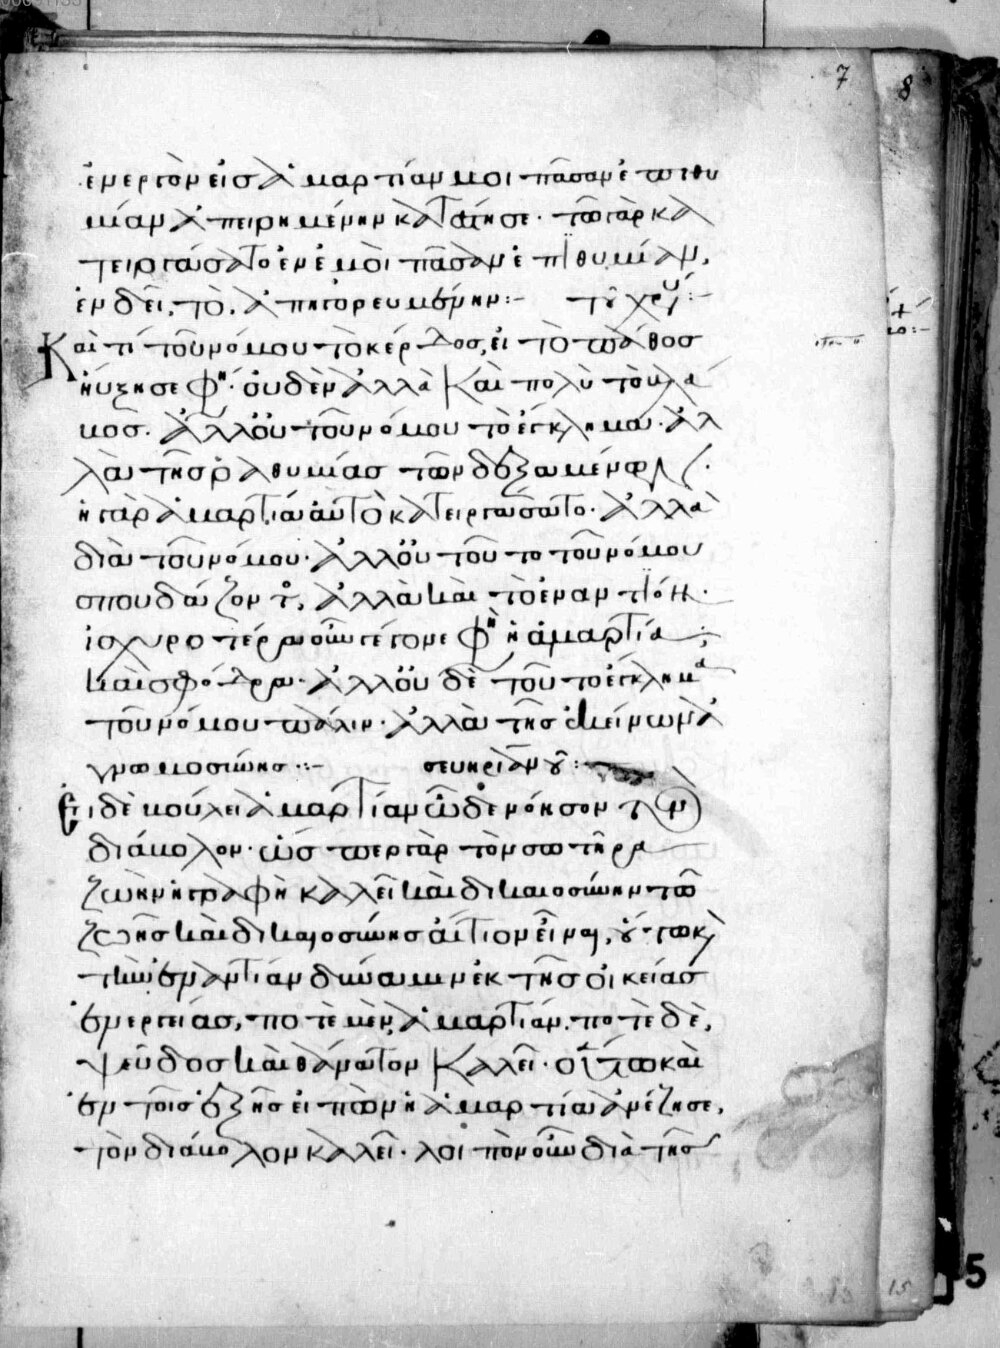 7 8
ἐνεργὸν εἰς ἁμαρτίαν μοι πᾶσαν ἐπιθυ
μίαν ἀπειρημένην κατέστησε. τὸ γὰρ κα
τειργάσατο ἐν ἐμοὶ πᾶσαν ἐπιθυμίαν,
ἐν δεῖ, τὸ, ἀπηγορευμένην:- τοῦ χρυ:-
Καὶ τί τοῦ νόμου τὸ κέρδος, εἰ τὸ πάθος
ηὔξησε φη. οὐδὲν ἀλλὰ καὶ πολὺ τὸ βλά
βος. ἀλλ' οὐ τοῦ νόμου τὸ ἔγκλημα. ἀλ
λὰ τῆς ῥαθυμίας τῶν δεξαμένων.
ἡ γὰρ ἁμαρτία αὐτὸ κατειργάσατο. ἀλλὰ
διὰ τοῦ νόμου. ἀλλ' οὐ τοῦτο τοῦ νόμου
σπουδάζοντος, ἀλλὰ καὶ τὸ ἐναντίον.
ἰσχυροτέρα οὖν γέγονε φη ἡ ἁμαρτία
καὶ σφόδρα. ἀλλ' οὐδὲ τοῦτο ἔγκλημα
τοῦ νόμου πάλιν. ἀλλὰ τῆς ἐκείνων ἀ
γνωμοσύνης:- σευηριανοῦ:
Εἰ δὲ βούλει ἁμαρτίαν ὧδε νόησον τὸν
διάβολον. ὥσπερ γὰρ τὸν σωτῆρα
ζωὴν ἡ γραφὴ καλεῖ καὶ δικαιοσύνην τῷ
ζωῆς καὶ δικαιοσύνης αἴτιον εἶναι, οὕτω καὶ
τὴν ἐναντίαν δύναμιν ἐκ τῆς οἰκείας
ἐνεργείας, ποτὲ μὲν, ἁμαρτίαν. ποτὲ δὲ,
ψεῦδος καὶ θάνατον καλεῖ. οὕτω καὶ
ἐν τοῖς ἑξῆς εἰπὼν ἡ ἁμαρτία ἀνέζησε,
τὸν διάβολον καλεῖ. λοιπὸν οὖν διὰ τῆς
15
5